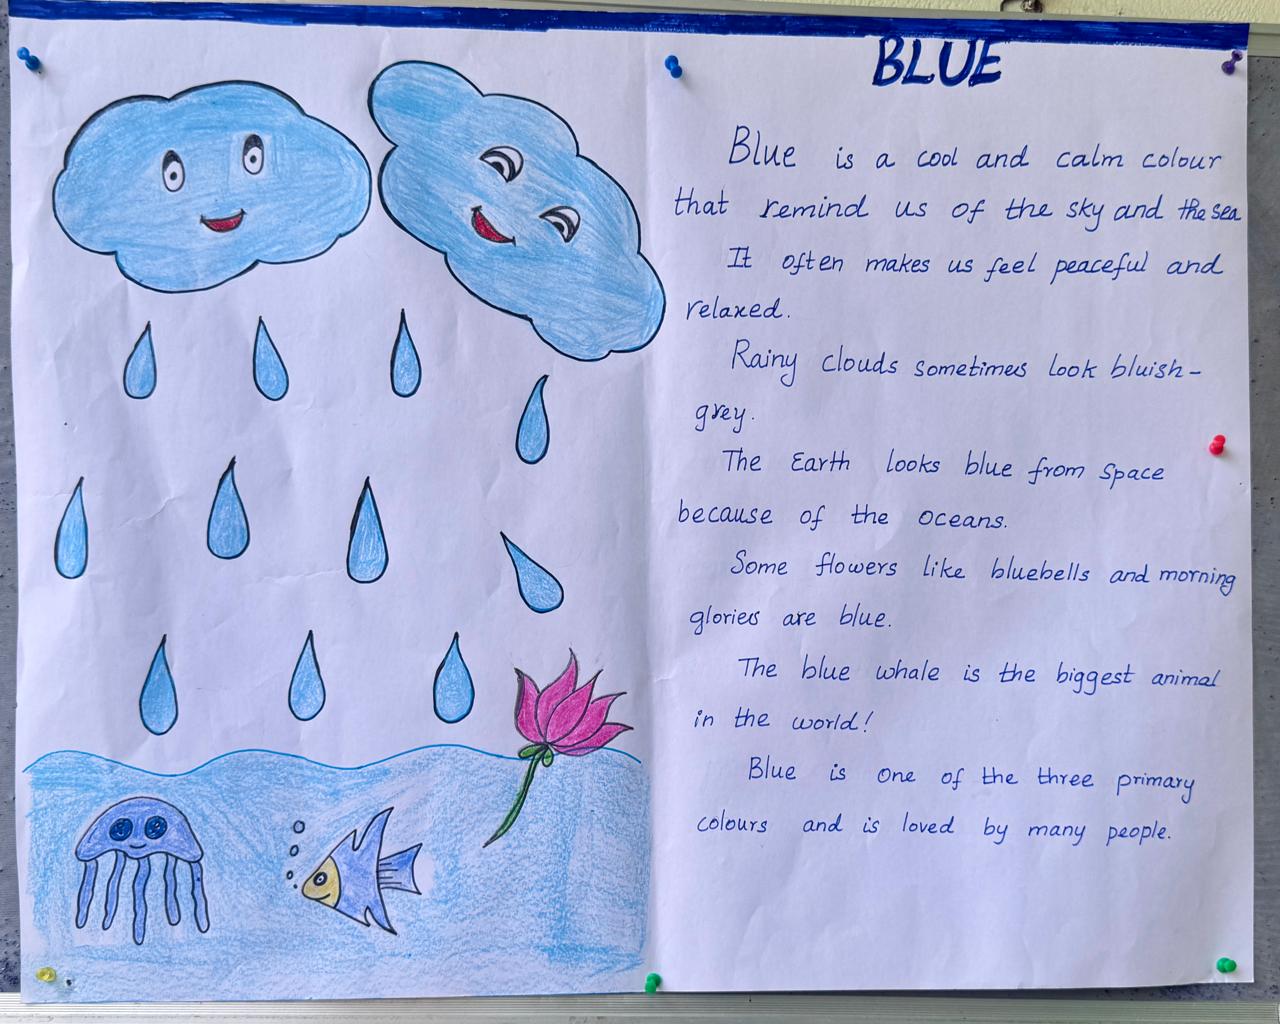 BLUE
Blue is a cool and calm colour
that remind us of the sky and the sea
It often makes us feel peaceful and
relaxed.
Rainy clouds sometimes look bluish-
grey.
The Earth looks blue from space
because of the oceans.
Some flowers like bluebells and morning
glories are blue.
The blue whale is the biggest animal
in the world!
Blue is one of the three primary
colours and is loved by many people.